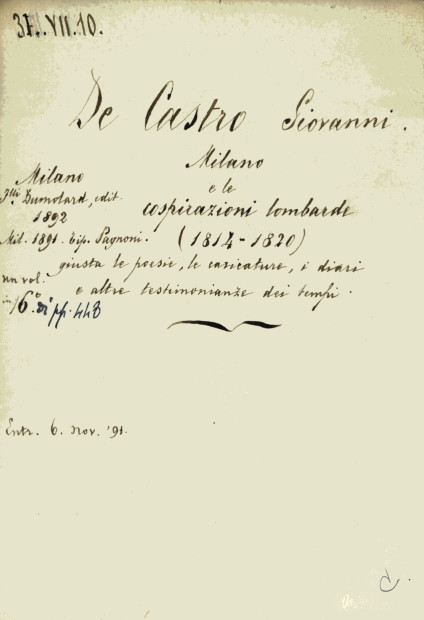 31.VII.10.
De Castro Giovanni.
Milano
e le
cospirazioni lombarde
(1814-1820)
giusta le poesie, le caricature, i diari
e altre testimonianze dei tempi.
Milano
F.lli Dumolard, edit.
1892
Mil. 1891. Tip. Pagnoni.
un vol.
in 16° di pp. 448
Entr. 6. Nov. '91.